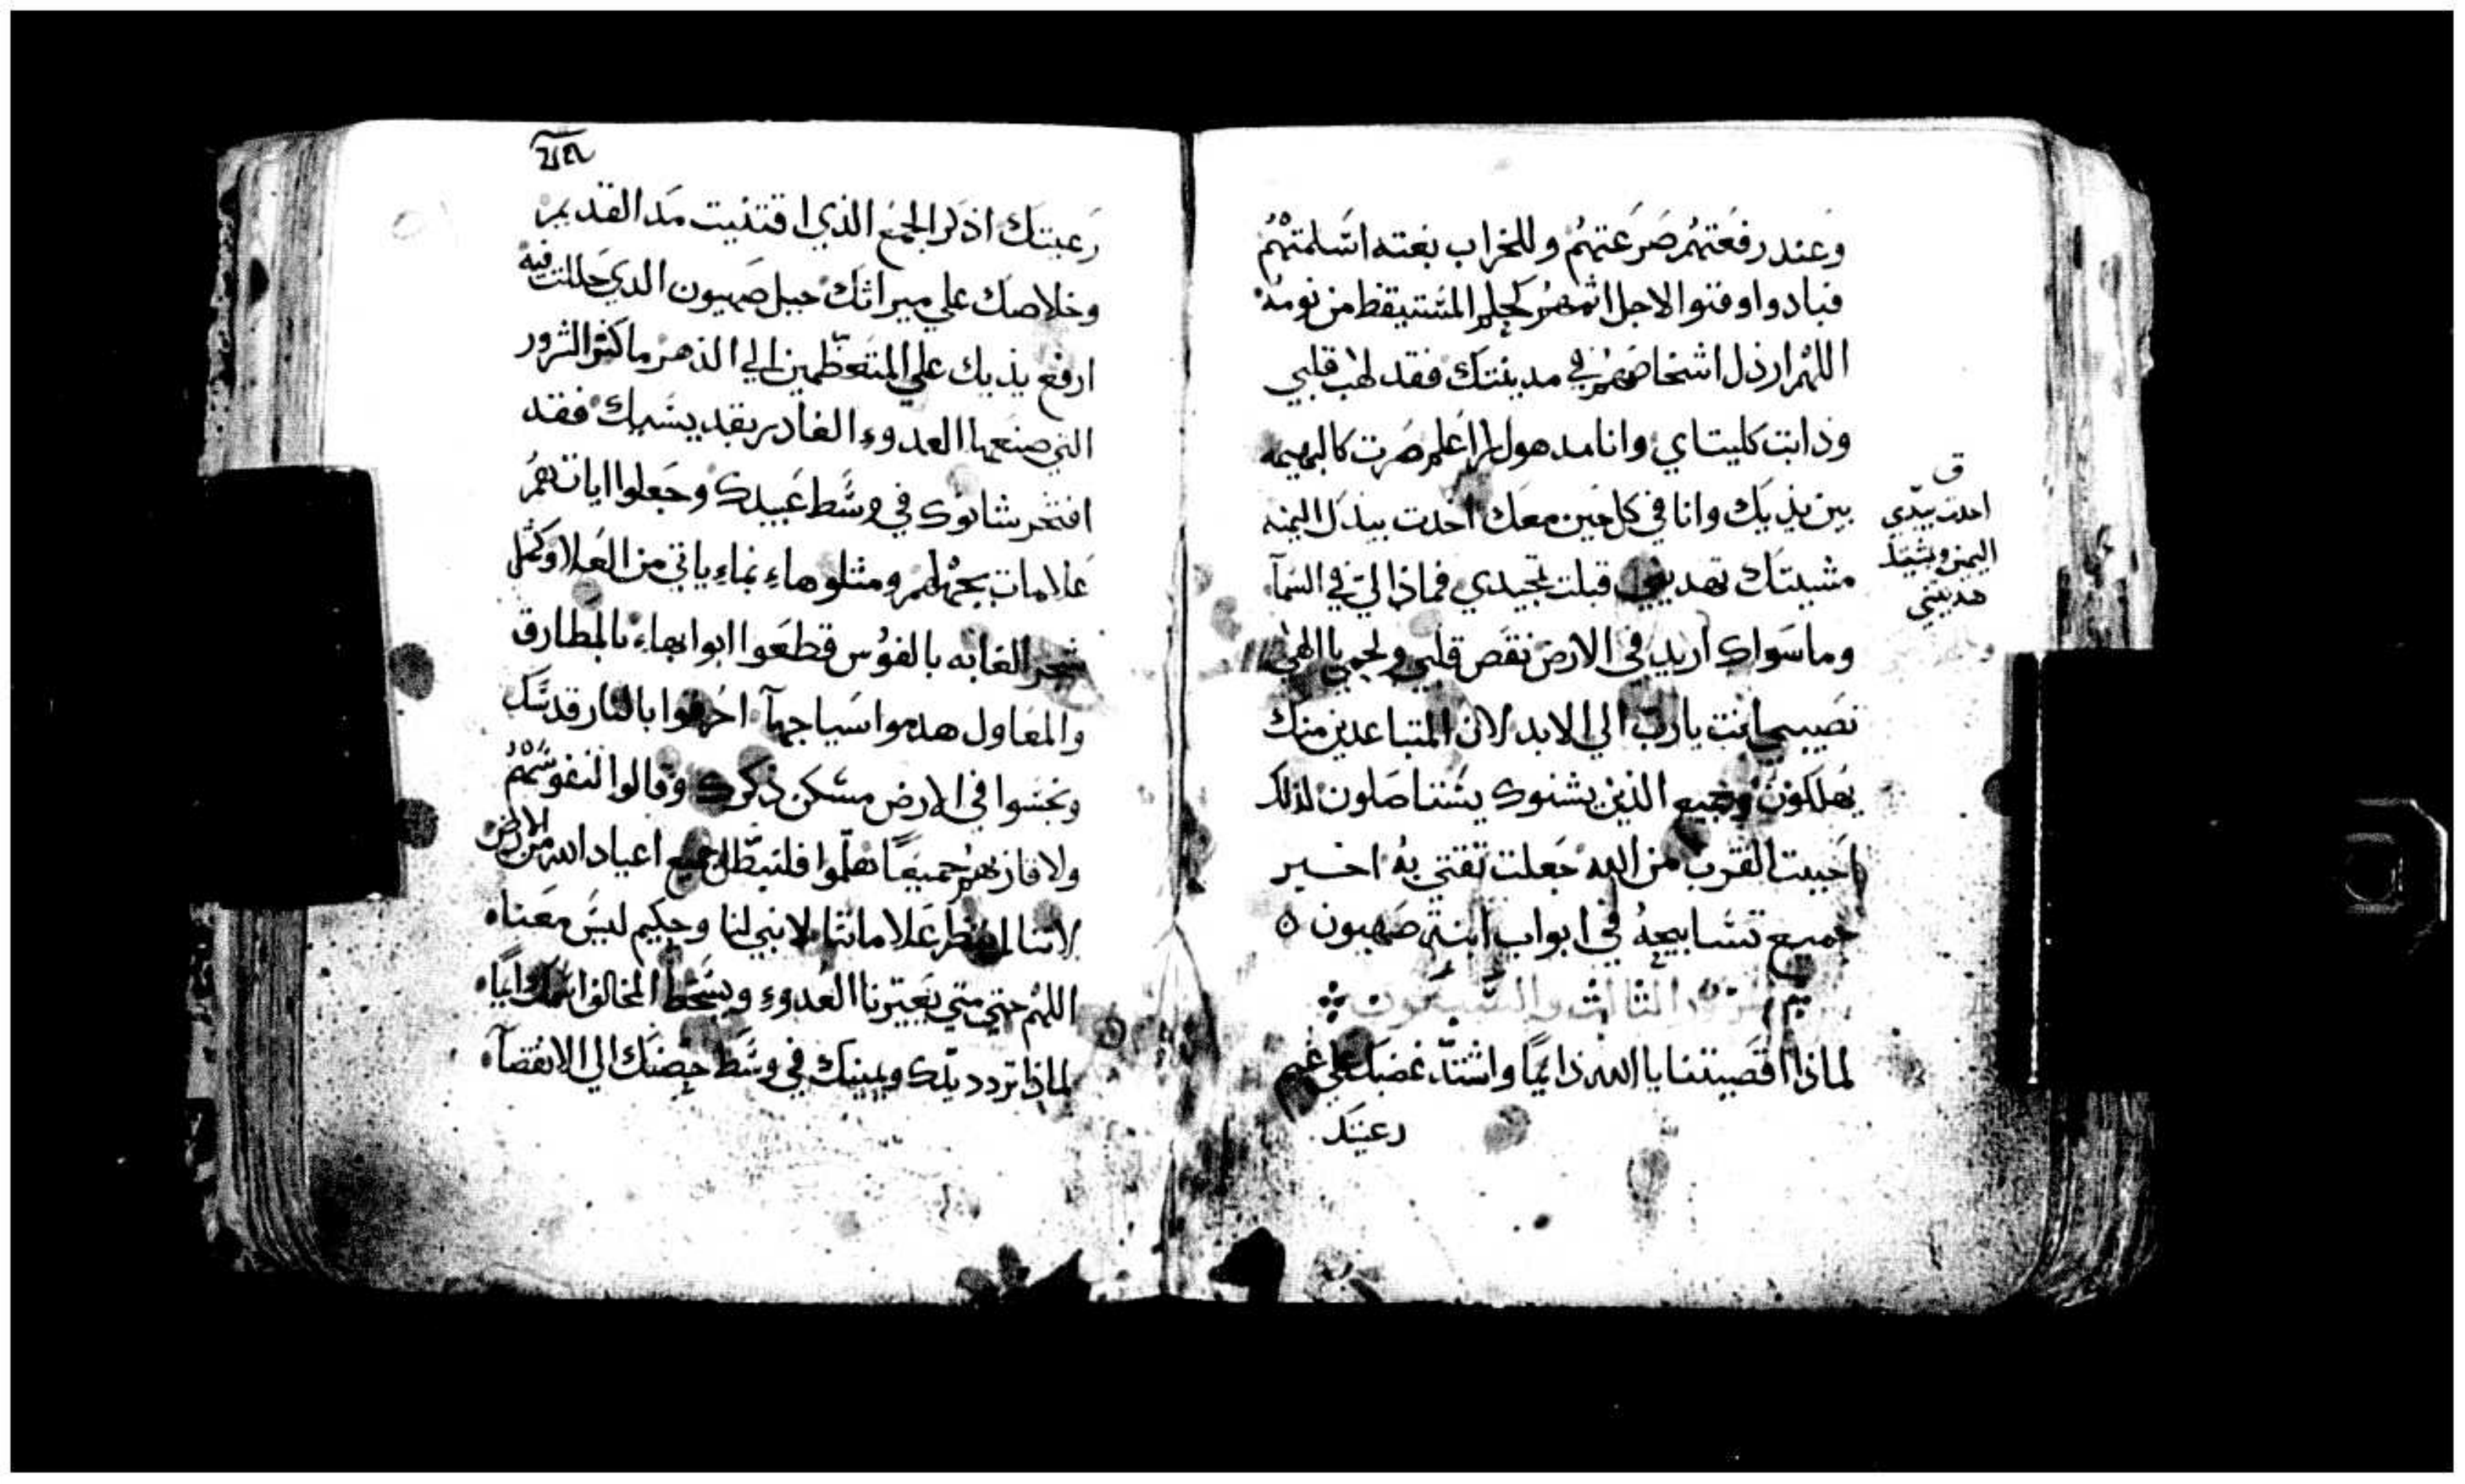 وعند رفعتهم صرعتهم وللخراب بغته اسلمتهم
فبادوا وفنوا لاجل اثمهم كحلم المستيقظ من نومه
اللهم ارذل اشخاصهم في مدينتك فقد لهب قلبي
وذابت كليتاي وانا مدهول لم اعلم صرت كالبهيمه
بين يديك وانا في كل حين معك اخدت بيدك اليمنه
مشيتك تهديني قبلت تمجيدي فماذا لي في السمآ
وما سواك اريد في الارض نقص قلبي ولحمي يا الهي
نصيبي انت يارب الي الابد لان المتباعدين منك
يهلكون وجميع الذين يشنوك يستاصلون لذلك
احببت القرب من الله جعلت ثقتي به اخبر
جميع تسابيحه في ابواب ابنة صهيون
المزمور الثالث والسبعون
لماذا اقصيتنا يا الله دايمًا واشتد غضبك علي غنم
رعيتك
ق
احدت بيدي
اليمين وبمشيتك
هديتني
رعيتك اذكر الجمع الذي اقتنيت مند القديم
وخلاصك علي ميراثك جبل صهيون الدي حللت فيه
ارفع يديك علي المتعظمين الي الدهر ما اكثر الشرور
التي صنعها العدوء الغادر بقديسيك فقد
افتخر شانوك في وسط عبيدك وجعلوا اياتهم
علامات بجهلهم ومثلوهاء بماء ياتي من العلا وكمثل
شجر الغابه بالفؤس قطعوا ابوابهاء بالمطارق
والمعاول هدموا سياجهآ احرقوا بالنار قدسك
ونجسوا في الارض مسكن ذكرك وقالوا لنفوسهم
ولاقاربهم جميعًا هلموا فلنبطل جميع اعياد الله من الارض
لاننا لم ننظر علاماتنا لا نبي لنا وحكيم ليس معنا
اللهم حتي متي يعيرنا العدوء ويسخط المخالف اسمك دايمًا
لماذا تردد يدك ويمينك في وسط حضنك الي الانقضآ